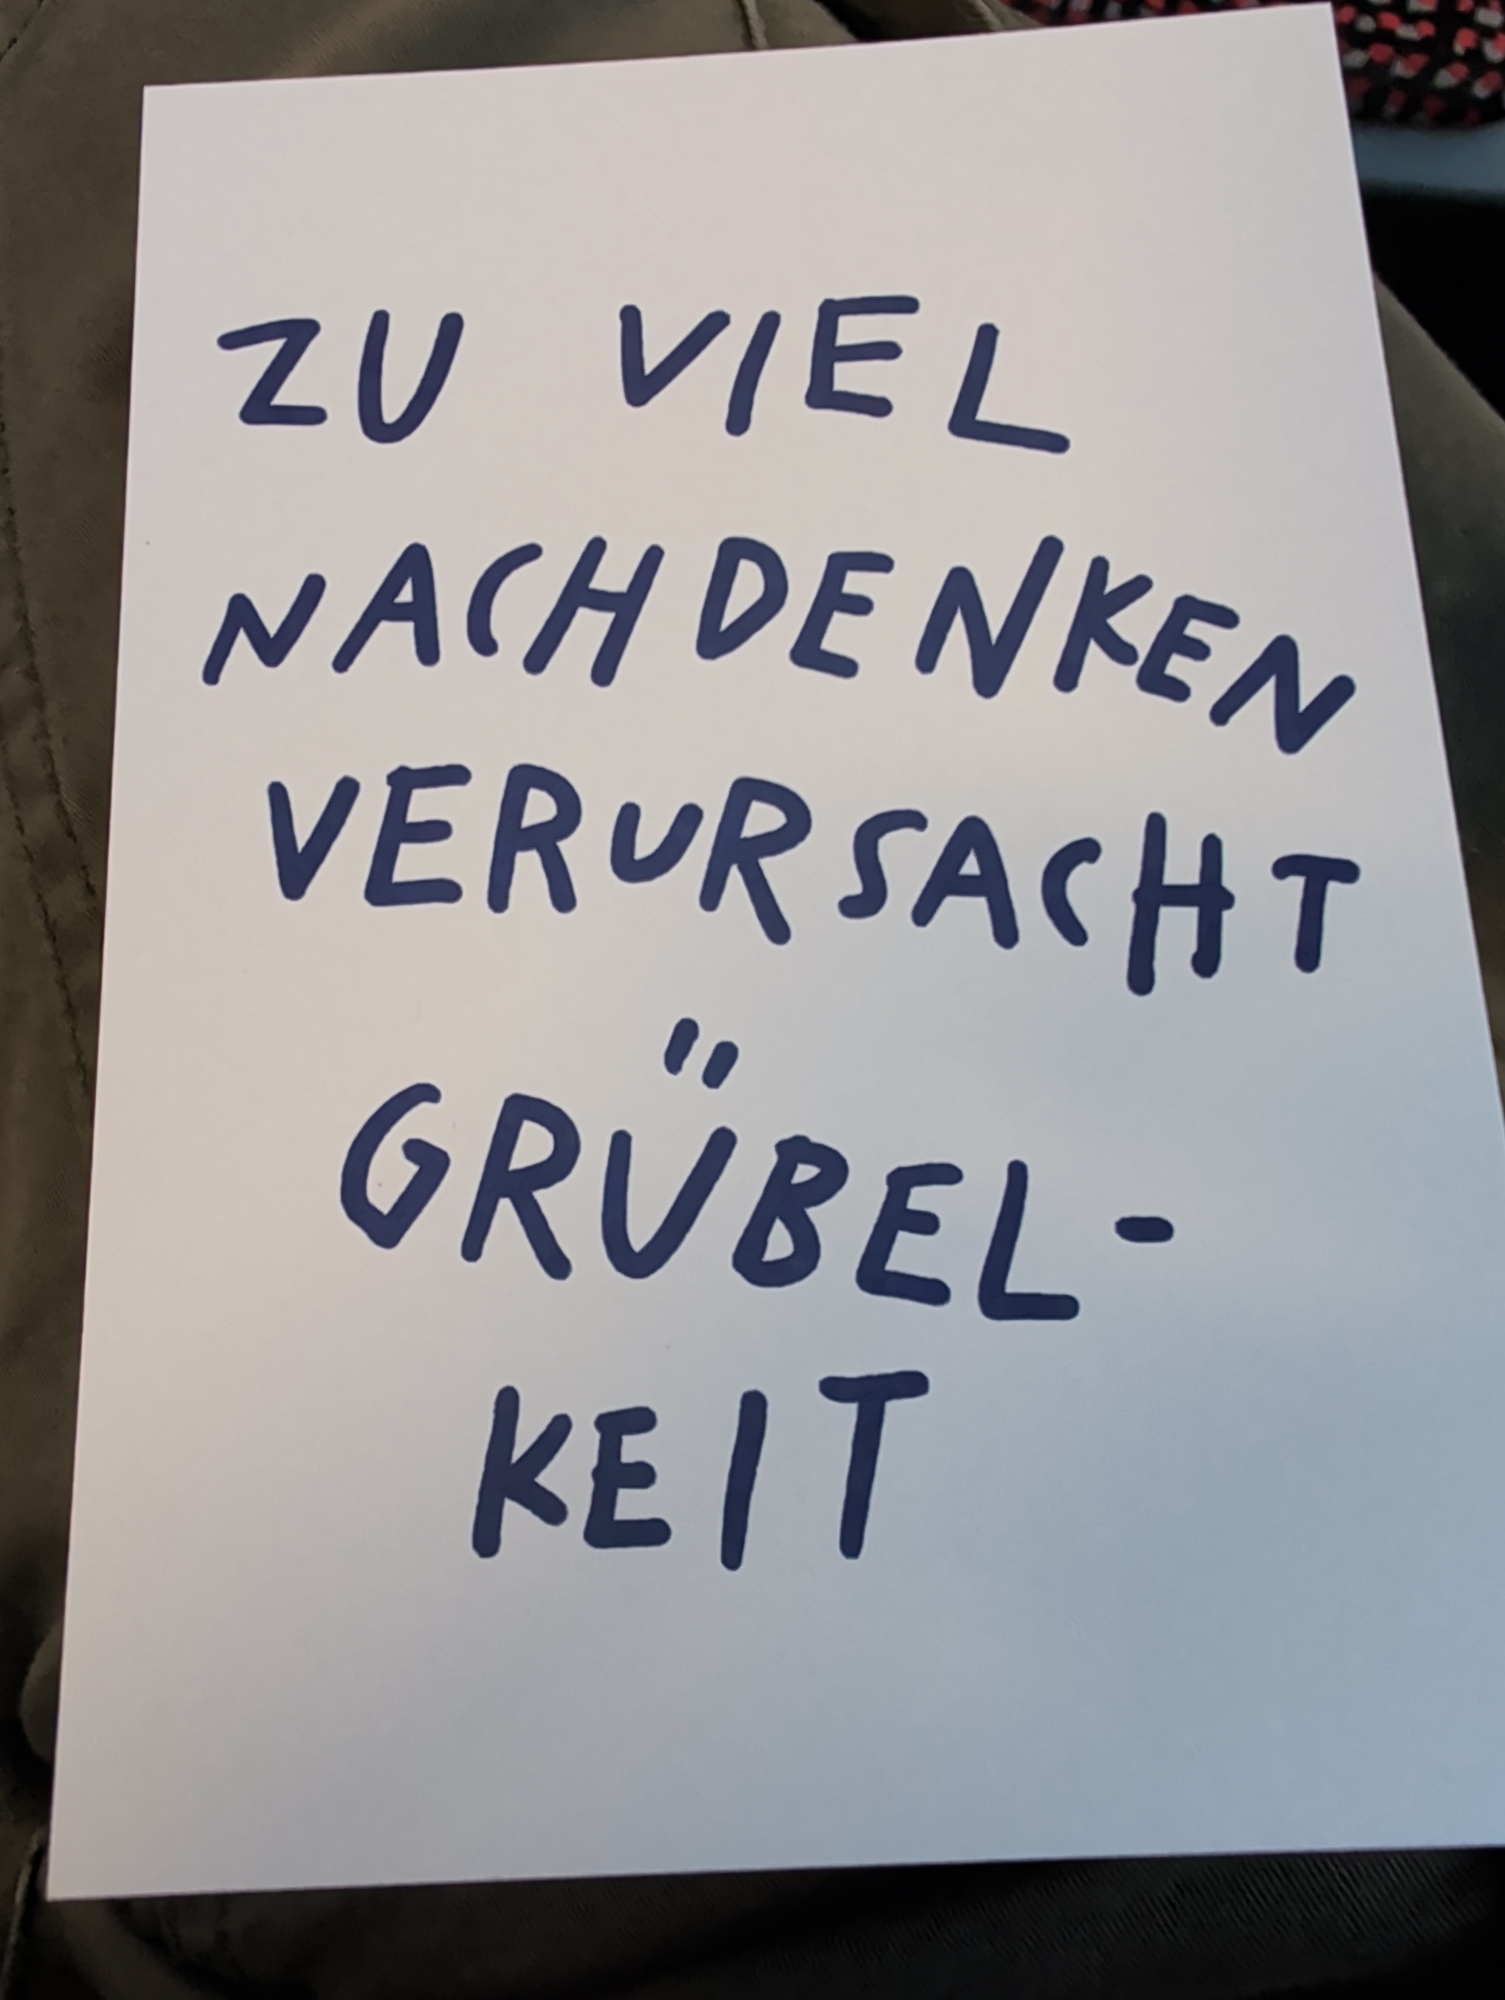 ZU VIEL
NACHDENKEN
VERURSACHT
GRÜBEL-
KEIT